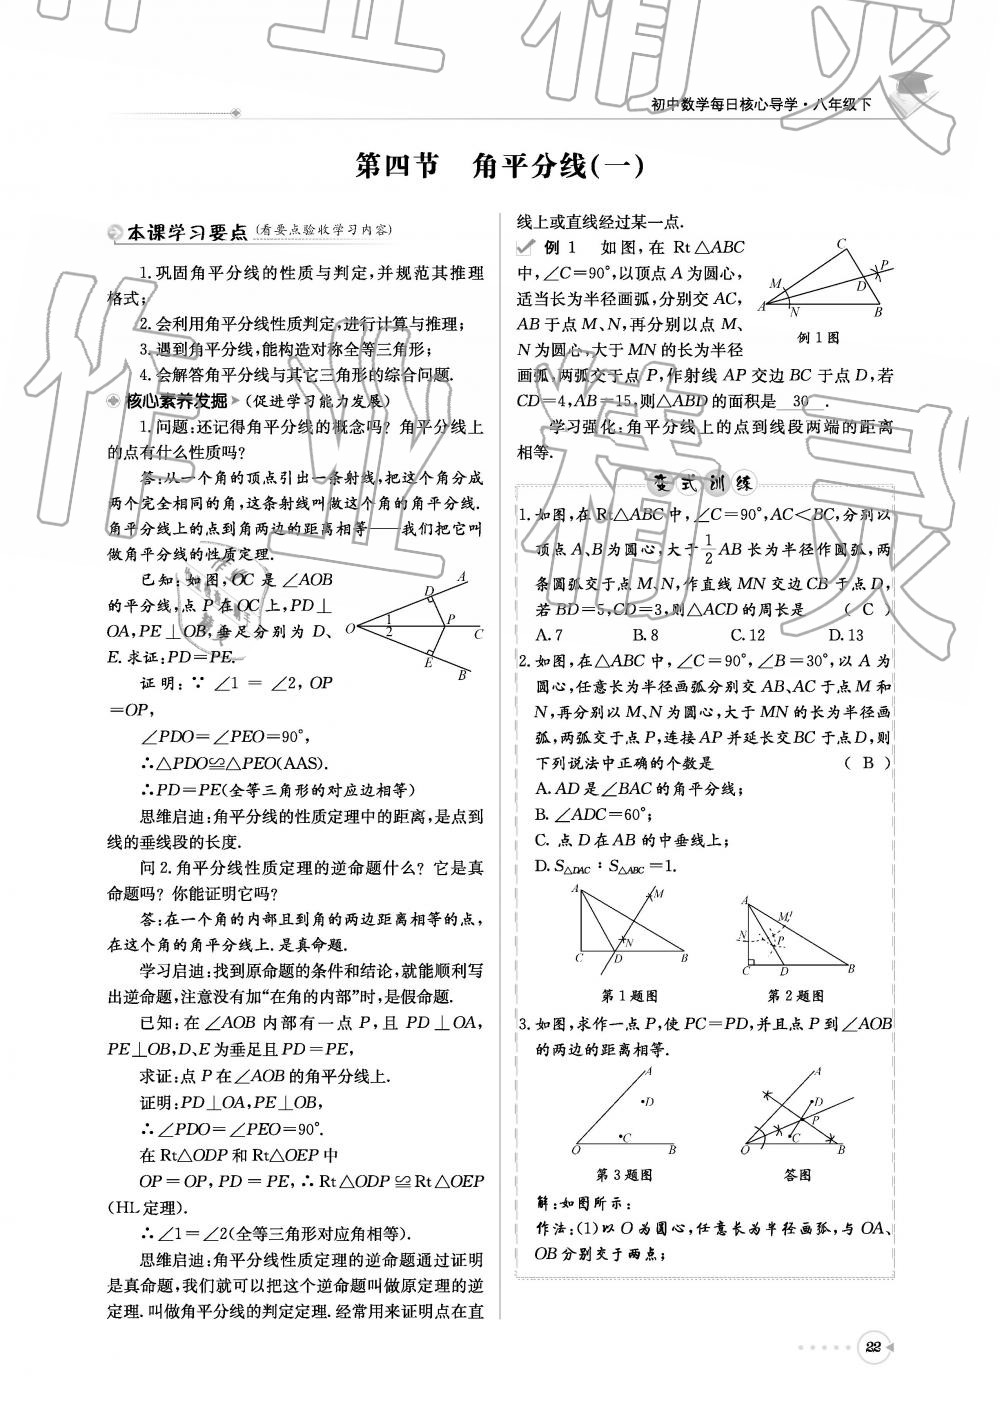 初中数学每日核心导学·八年级下
第四节 角平分线(一)
本课学习要点(看要点验收学习内容)
1.巩固角平分线的性质与判定,并规范其推理
格式;
2.会利用角平分线性质判定,进行计算与推理;
3.遇到角平分线,能构造对称全等三角形;
4.会解答角平分线与其它三角形的综合问题.
核心素养发掘(促进学习能力发展)
1.问题:还记得角平分线的概念吗?角平分线上
的点有什么性质吗?
答:从一个角的顶点引出一条射线,把这个角分成
两个完全相同的角,这条射线叫做这个角的角平分线.
角平分线上的点到角两边的距离相等——我们把它叫
做角平分线的性质定理.
已知:如图,OC 是 ∠AOB
的平分线,点 P 在 OC 上,PD⊥
OA,PE⊥OB,垂足分别为 D、
E.求证:PD=PE.
A
D
1
2
O
P
C
E
B
证明:∵ ∠1 = ∠2, OP
=OP,
∠PDO=∠PEO=90°,
∴△PDO≌△PEO(AAS).
∴PD=PE(全等三角形的对应边相等)
思维启迪:角平分线的性质定理中的距离,是点到
线的垂线段的长度.
问 2.角平分线性质定理的逆命题什么?它是真
命题吗?你能证明它吗?
答:在一个角的内部且到角的两边距离相等的点,
在这个角的角平分线上.是真命题.
学习启迪:找到原命题的条件和结论,就能顺利写
出逆命题,注意没有加“在角的内部”时,是假命题.
已知:在∠AOB 内部有一点 P,且 PD⊥OA,
PE⊥OB,D、E 为垂足且 PD=PE,
求证:点 P 在∠AOB 的角平分线上.
证明:PD⊥OA,PE⊥OB,
∴∠PDO=∠PEO=90°.
在 Rt△ODP 和 Rt△OEP 中
OP=OP,PD=PE,∴Rt△ODP≌Rt△OEP
(HL 定理).
∴∠1=∠2(全等三角形对应角相等).
思维启迪:角平分线性质定理的逆命题通过证明
是真命题,我们就可以把这个逆命题叫做原定理的逆
定理.叫做角平分线的判定定理.经常用来证明点在直
线上或直线经过某一点.
例 1 如图,在 Rt△ABC
中,∠C=90°,以顶点 A 为圆心,
适当长为半径画弧,分别交 AC,
AB 于点 M、N,再分别以点 M、
N 为圆心,大于 MN 的长为半径
画弧,两弧交于点 P,作射线 AP 交边 BC 于点 D,若
CD=4,AB=15,则△ABD 的面积是 30 .
C
P
M
D
A
N
B
例 1 图
学习强化:角平分线上的点到线段两端的距离
相等.
变式训练
1.如图,在 Rt△ABC 中,∠C=90°,AC<BC,分别以
顶点 A、B 为圆心,大于 1/2 AB 长为半径作圆弧,两
条圆弧交于点 M、N,作直线 MN 交边 CB 于点 D,
若 BD=5,CD=3,则△ACD 的周长是 ( C )
A.7 B.8 C.12 D.13
2.如图,在△ABC 中,∠C=90°,∠B=30°,以 A 为
圆心,任意长为半径画弧分别交 AB、AC 于点 M 和
N,再分别以 M、N 为圆心,大于 MN 的长为半径画
弧,两弧交于点 P,连接 AP 并延长交 BC 于点 D,则
下列说法中正确的个数是 ( B )
A. AD 是∠BAC 的角平分线;
B. ∠ADC=60°;
C. 点 D 在 AB 的中垂线上;
D. S△DAC:S△ABC=1.
A
M
N
C
D
B
第 1 题图
A
M
N
P
C
D
B
第 2 题图
3.如图,求作一点 P,使 PC=PD,并且点 P 到∠AOB
的两边的距离相等.
A
D
C
O
B
第 3 题图
A
D
P
C
O
B
答图
解:如图所示:
作法:(1)以 O 为圆心,任意长为半径画弧,与 OA、
OB 分别交于两点;
22
作业精灵
作业精灵